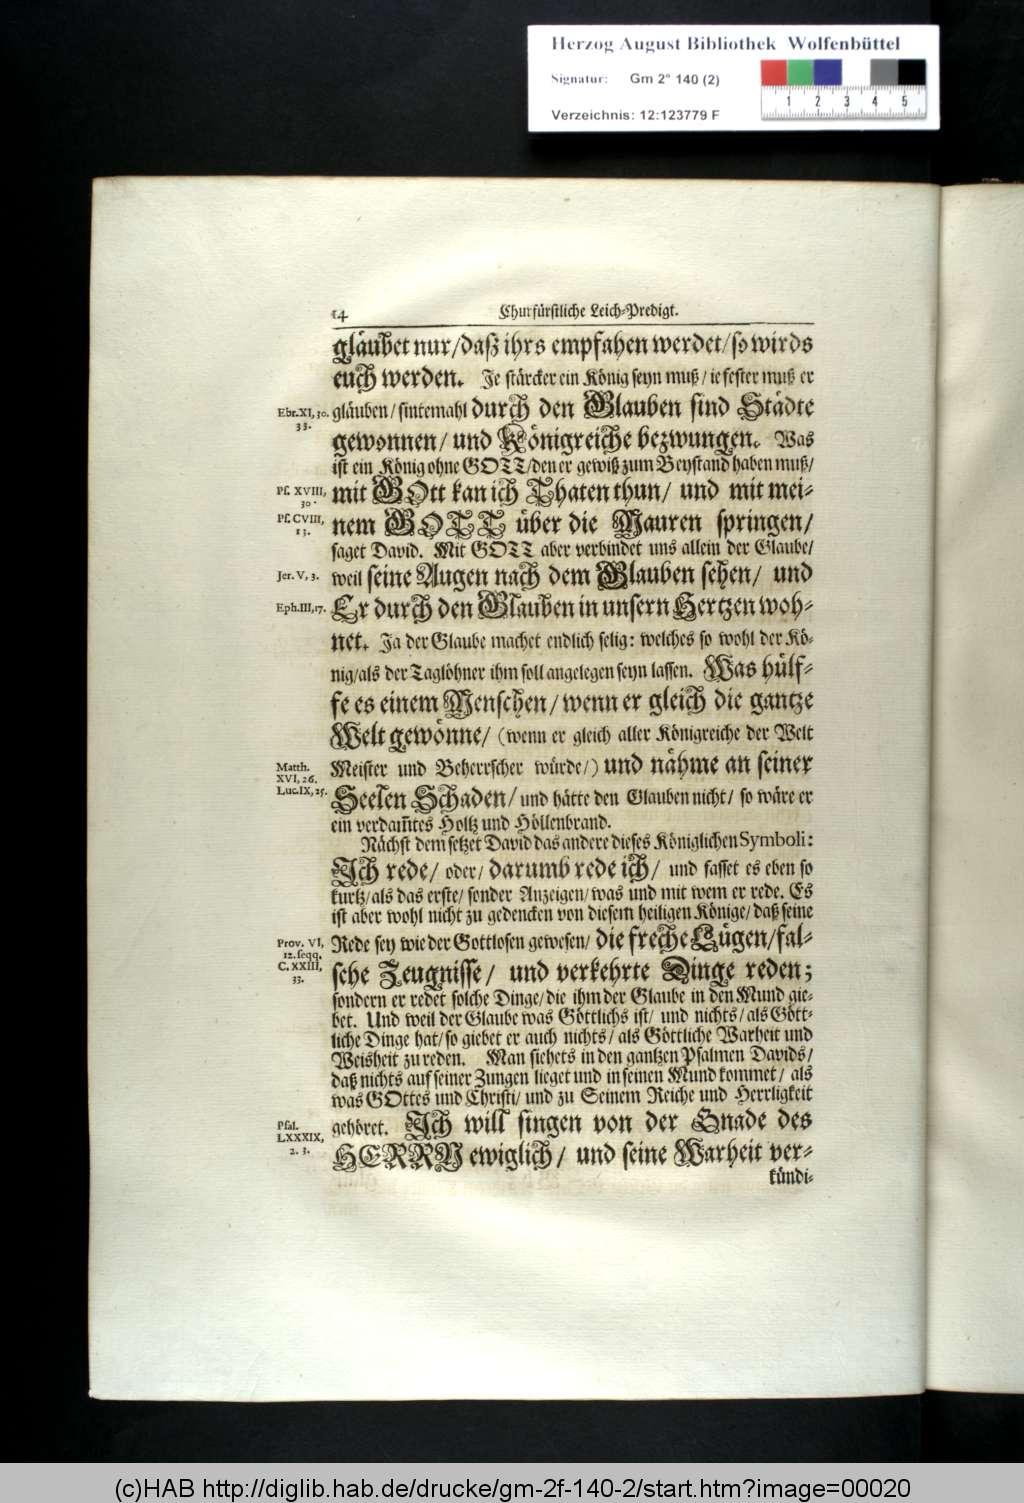 Herzog August Bibliothek Wolfenbüttel
Signatur: Gm 2° 140 (2)
Verzeichnis: 12:123779 F
1 2 3 4 5
14 Churfürstliche Leich-Predigt.
gläubet nur/daß ihrs empfahen werdet/so wirds
euch werden. Je stärcker ein König seyn muß/ ie fester muß er
Ebr.XI, 30. gläuben/ sintemahl durch den Glauben sind Städte
33.
gewonnen/ und Königreiche bezwungen. Was
ist ein König ohne GOTT/den er gewiß zum Beystand haben muß/
Ps. XVIII, mit GOtt kan ich Thaten thun/ und mit mei-
30.
Ps. CVIII, nem GOTT über die Mauren springen/
13.
saget David. Mit GOTT aber verbindet uns allein der Glaube/
Jer. V, 3. weil seine Augen nach dem Glauben sehen/ und
Eph.III,17. Er durch den Glauben in unsern Hertzen woh-
net. Ja der Glaube machet endlich selig: welches so wohl der Kö-
nig/als der Taglöhner ihm soll angelegen seyn lassen. Was hülf-
fe es einem Menschen/ wenn er gleich die gantze
Welt gewönne/ (wenn er gleich aller Königreiche der Welt
Matth. XVI, 26. Meister und Beherrscher würde/) und nähme an seiner
Luc.IX,25. Seelen Schaden/ und hätte den Glauben nicht/ so wäre er
ein verdam̃tes Holtz und Höllenbrand.
Nächst dem setzet David das andere dieses Königlichen Symboli:
Ich rede/ oder/ darumb rede ich/ und fasset es eben so
kurtz/als das erste/ sonder Anzeigen/was und mit wem er rede. Es
ist aber wohl nicht zu gedencken von diesem heiligen Könige/daß seine
Prov. VI, Rede sey wie der Gottlosen gewesen/ die freche Lügen/fal-
12. seqq.
C. XXIII, sche Zeugnisse/ und verkehrte Dinge reden;
33.
sondern er redet solche Dinge/die ihm der Glaube in den Mund gie-
bet. Und weil der Glaube was Göttlichs ist/ und nichts/als Gött-
liche Dinge hat/so giebet er auch nichts/ als Göttliche Warheit und
Weisheit zu reden. Man siehets in den gantzen Psalmen Davids/
daß nichts auf seiner Zungen lieget und in seinen Mund kommet/ als
was GOttes und Christi/ und zu Seinem Reiche und Herrligkeit
Psal. gehöret. Ich will singen von der Gnade des
LXXXIX,
2. 3. HERRN ewiglich/ und seine Warheit ver-
kündi-
(c)HAB http://diglib.hab.de/drucke/gm-2f-140-2/start.htm?image=00020